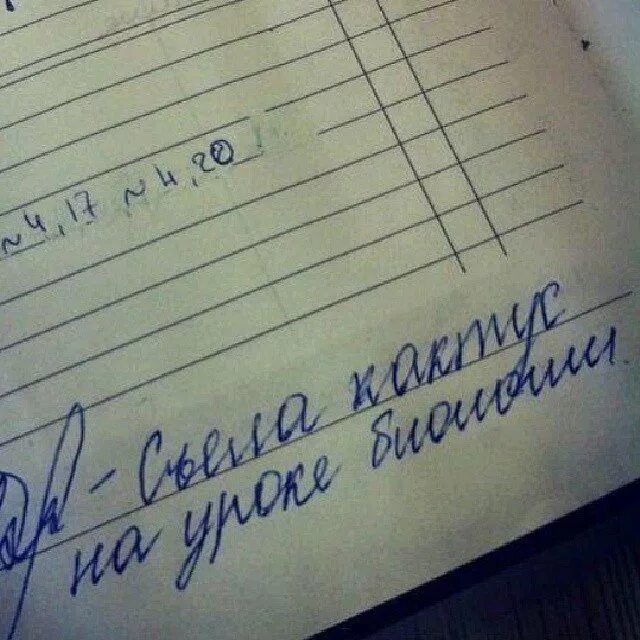 №4,17 №4,20
- Съела кактус
на уроке биологии